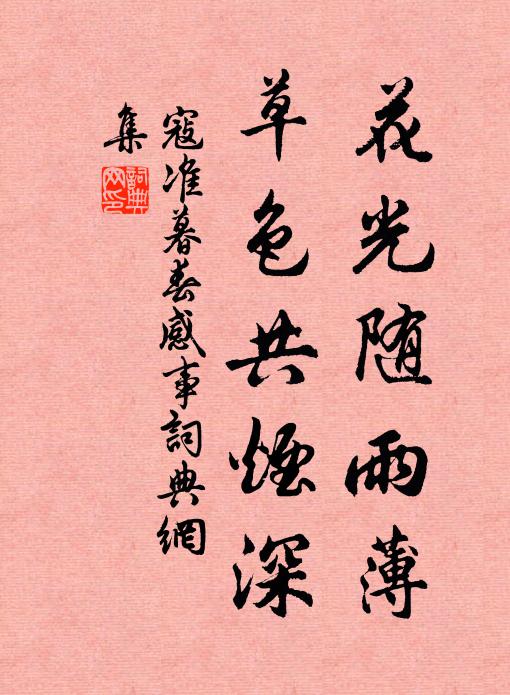 花光随雨薄
草色共煙深
寇准暮春感事詞典網
集
詞典
网印